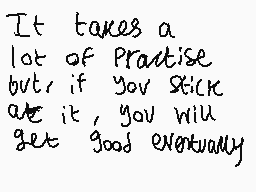 It takes a
lot of practise
but, if you stick
at it, you will
get good eventually